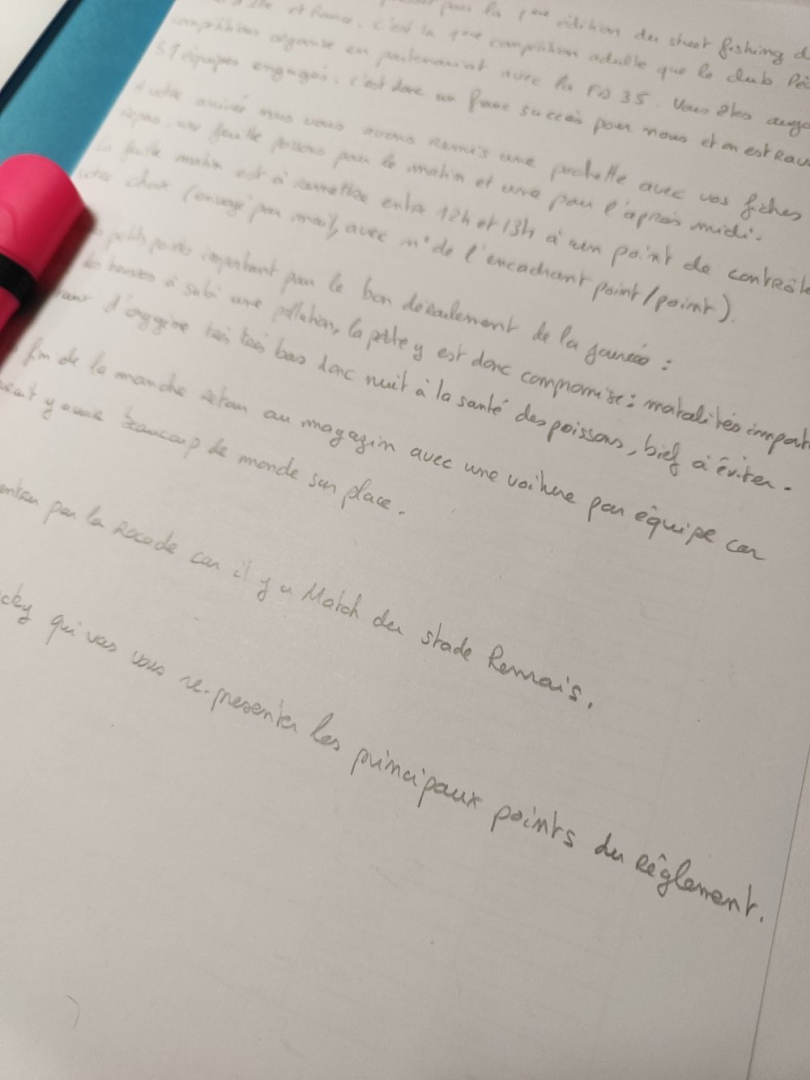 pour la 1ère édition du street fishing d
et France. c'est la 1ère compétition adulte que le club Pêc
compétitions organise en partenariat avec la FD 35. Vous êtes aujo
31 équipes engagés, c'est donc un franc succès pour nous et on est ravi
arrivée nous vous avons remis une pochette avec vos fiches
repas, une feuille poissons pour le matin et une pour l'après midi.
feuille matin est à remettre entre 12h et 13h à un point de contrôle
choix (envoyé par mail, avec n° de l'encadrant point/point).
petits points important pour le bon déroulement de la journée :
à subi une pollution, la pêche y est donc compromise : matalités import
d'oxygène très très bas donc nuit à la santé des poissons, bief à éviter.
fin de la manche retour au magazin avec une voiture par équipe car
y avoir beaucoup de monde sur place.
par la Rocade car il y a Match du stade Rennais.
cky qui vas vous re-presenter les principaux points du règlement.